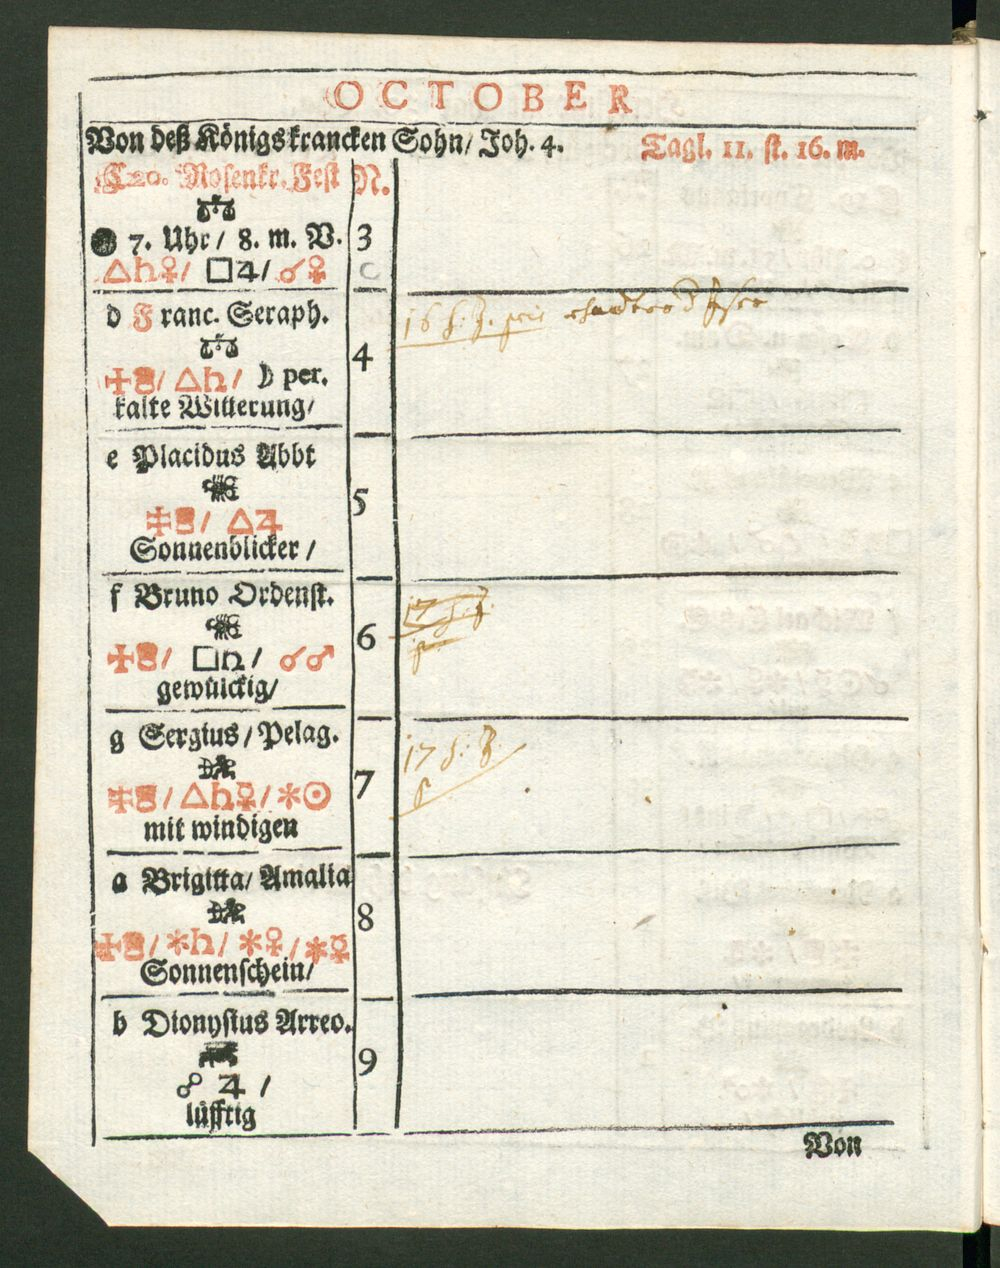 OCTOBER
Von deß Königs krancken Sohn/ Joh. 4. Tagl. 11. st. 16. m.
C 20. Rosenkr. Fest N.
♎
● 7. Uhr/ 8. m. V. 3
△♄♀/ □♃/ ☌♀ C
d Franc. Seraph.
16
♎ 4
△♄/ ☽ per.
kalte Witterung/
e Placidus Abbt
♏ 5
△♃
Sonnenblicker /
f Bruno Ordenst.
17
♏ 6
□♄/ ☌♂
gewülckig/
g Sergius / Pelag.
17
♐ 7
△♄♀/ ✶☉
mit windigen
a Brigitta/ Amalia
♐ 8
✶♄/ ✶♀/ ✶☿
Sonnenschein/
b Dionysius Arreo.
♑ 9
☍ ♃ /
lüfftig
Von